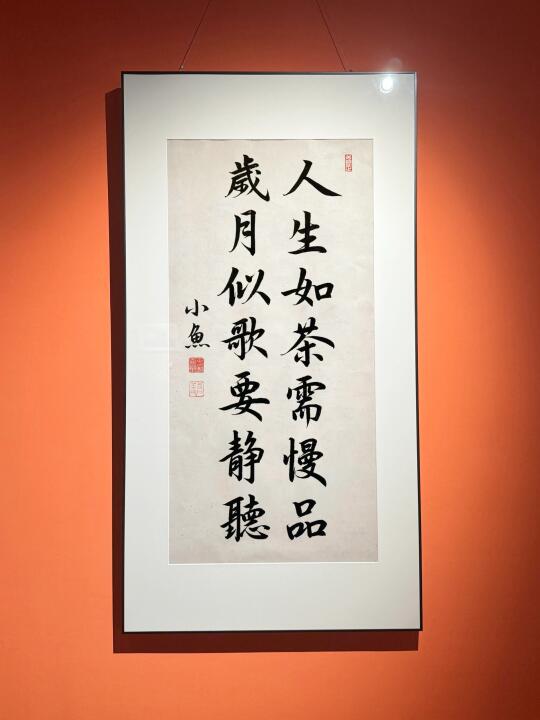 人生如茶需慢品
歲月似歌要静聽
小魚